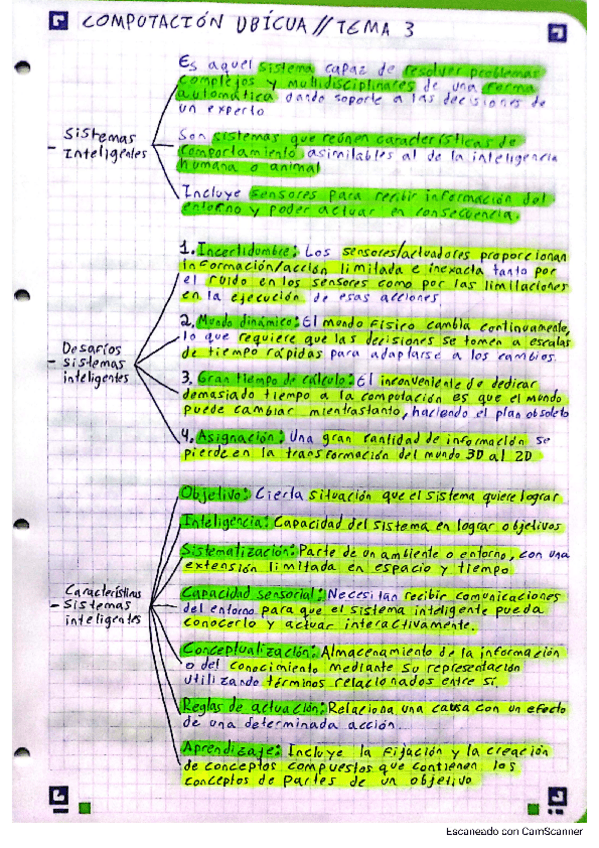 COMPUTACIÓN UBÍCUA // TEMA 3
Es aquel sistema capaz de resolver problemas
complejos y multidisciplinares de una forma
automática dando soporte a las decisiones de
un experto
- Sistemas
Inteligentes
Son sistemas que reúnen características de
comportamiento asimilables al de la inteligencia
humana o animal
Incluye sensores para recibir información del
entorno y poder actuar en consecuencia.
1. Incertidumbre: Los sensores/actuadores proporcionan
información/acción limitada e inexacta tanto por
el ruido en los sensores como por las limitaciones
en la ejecución de esas acciones.
2. Mundo dinámico: El mundo físico cambia continuamente,
lo que requiere que las decisiones se tomen a escalas
de tiempo rápidas para adaptarse a los cambios.
- Desafíos
sistemas
inteligentes
3. Gran tiempo de cálculo: El inconveniente de dedicar
demasiado tiempo a la computación es que el mundo
puede cambiar mientrastanto, haciendo el plan obsoleto
4. Asignación: Una gran cantidad de información se
pierde en la transformación del mundo 3D al 2D
Objetivo: Cierta situación que el sistema quiere lograr
Inteligencia: Capacidad del sistema en lograr objetivos
Sistematización: Parte de un ambiente o entorno, con una
extensión limitada en espacio y tiempo
- Características
Sistemas
inteligentes
Capacidad sensorial: Necesitan recibir comunicaciones
del entorno para que el sistema inteligente pueda
conocerlo y actuar interactivamente.
Conceptualización: Almacenamiento de la información
o del conocimiento mediante su representación
utilizando términos relacionados entre sí.
Reglas de actuación: Relaciona una causa con un efecto
de una determinada acción.
Aprendizaje: Incluye la fijación y la creación
de conceptos compuestos que contienen los
conceptos de partes de un objetivo
Escaneado con CamScanner